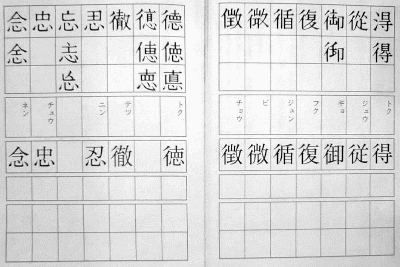 淂從御復循微徴
得御
トク
ジュウ
ギョ
フク
ジュン
ビ
チョウ
得従御復循微徴
徳德徹忍忘忠念
徳德
悳
トク
テツ
ニン
チュウ
ネン
徳徹忍忠念